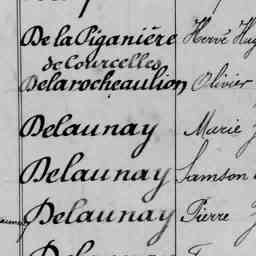 De la Piganiére Hervé
de Courcelles
Delarocheaulion Olivier
Delaunay Marie
Delaunay Samson
Delaunay Pierre